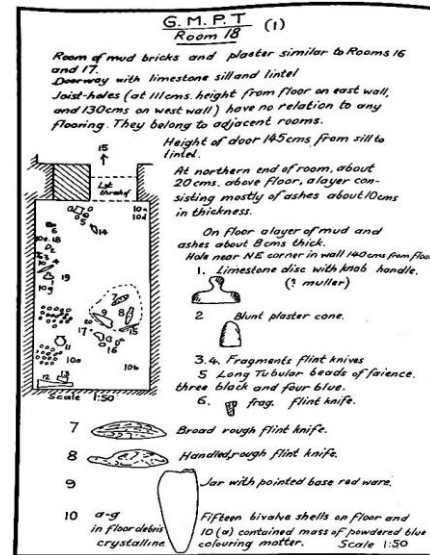 G. M. P. T (1)
Room 18
Room of mud bricks and plaster similar to Rooms 16
and 17.
Doorway with limestone sill and lintel
Joist-holes (at 111cms. height from floor on east wall,
and 130cms on west wall) have no relation to any
flooring. They belong to adjacent rooms.
Height of door 145cms, from sill to
lintel.
15
At northern end of room, about
20cms. above floor, a layer con-
sisting mostly of ashes about 10cms
in thickness.
On floor a layer of mud and
ashes about 8cms thick.
Hole near NE corner in wall 140cms from floor
1. Limestone disc with knob handle.
(? muller)
2 Blunt plaster cone.
3.4. Fragments flint knives
5 Long Tubular beads of faience.
three black and four blue.
6. frag. flint knife.
14
19
9
8
17
16
15
11
10a
10b
12
13
Scale 1:50
7 Broad rough flint knife.
8 Handled, rough flint knife.
9 Jar with pointed base red ware.
10 a-g Fifteen bivalve shells on floor and
in floor debris 10 (a) contained mass of powdered blue
crystalline colouring matter. Scale 1:50